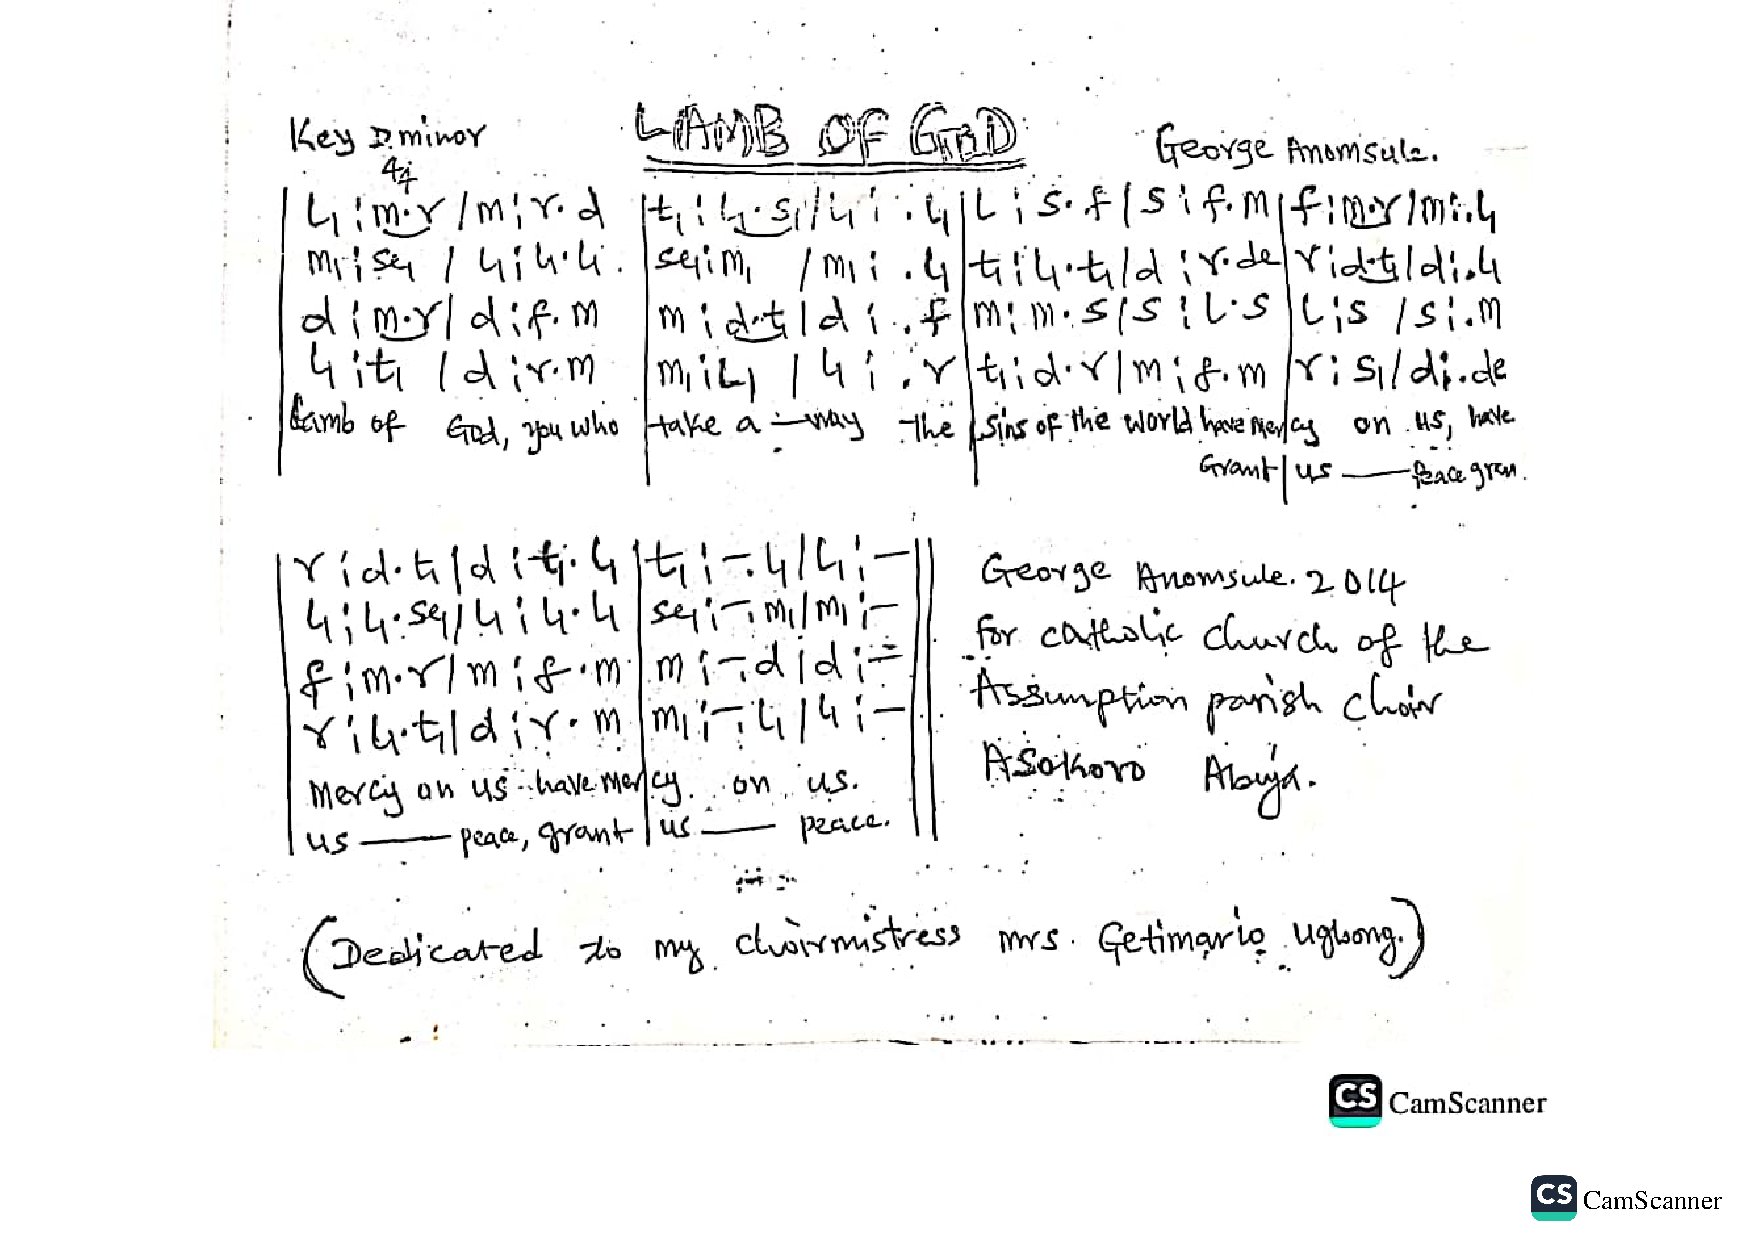 Key D minor LAMB OF GOD George Anomsule.
4/4
| l₁ : m.r / m : r.d | t₁ : l₁.s₁ / l₁ : .l₁ | l : s.f | s : f.m | f : m.r / m : .l₁
m₁ : se₁ / l₁ : l₁.l₁ | se₁ : m₁ / m₁ : .l₁ | t₁ : l₁.t₁ / d : r.de | r : d.t₁ / d : .l₁
d : m.r / d : f.m | m : d.t₁ / d : .f | m : m.s / s : l.s | l : s / s : .m
l₁ : t₁ / d : r.m | m₁ : l₁ / l₁ : .r | t₁ : d.r / m : f.m | r : s₁ / d : .de
Lamb of God, you who | take a - way the | sins of the world have mer | cy on us, have
Grant | us —— Peace gran.
| r : d.t₁ | d : t₁.l₁ | t₁ : - . l₁ / l₁ : - ||
l₁ : l₁.se₁ / l₁ : l₁.l₁ | se₁ : - . m₁ / m₁ : - ||
f : m.r / m : f.m | m : - . d | d : - ||
r : l₁.t₁ | d : r.m | m₁ : - . l₁ / l₁ : - ||
Mercy on us have mer | cy on us.
us —— peace, grant | us —— peace.
George Anomsule. 2014
For catholic church of the
Assumption parish choir
Asokoro Abuja.
(Dedicated to my choirmistress mrs. Getimario Ugbong.)
CS CamScanner
CS CamScanner